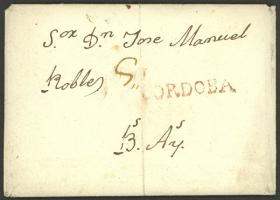 S.ᵒʳ D.ⁿ Jose Manuel
Robles
CORDOBA
B.ˢ Ay.ˢ